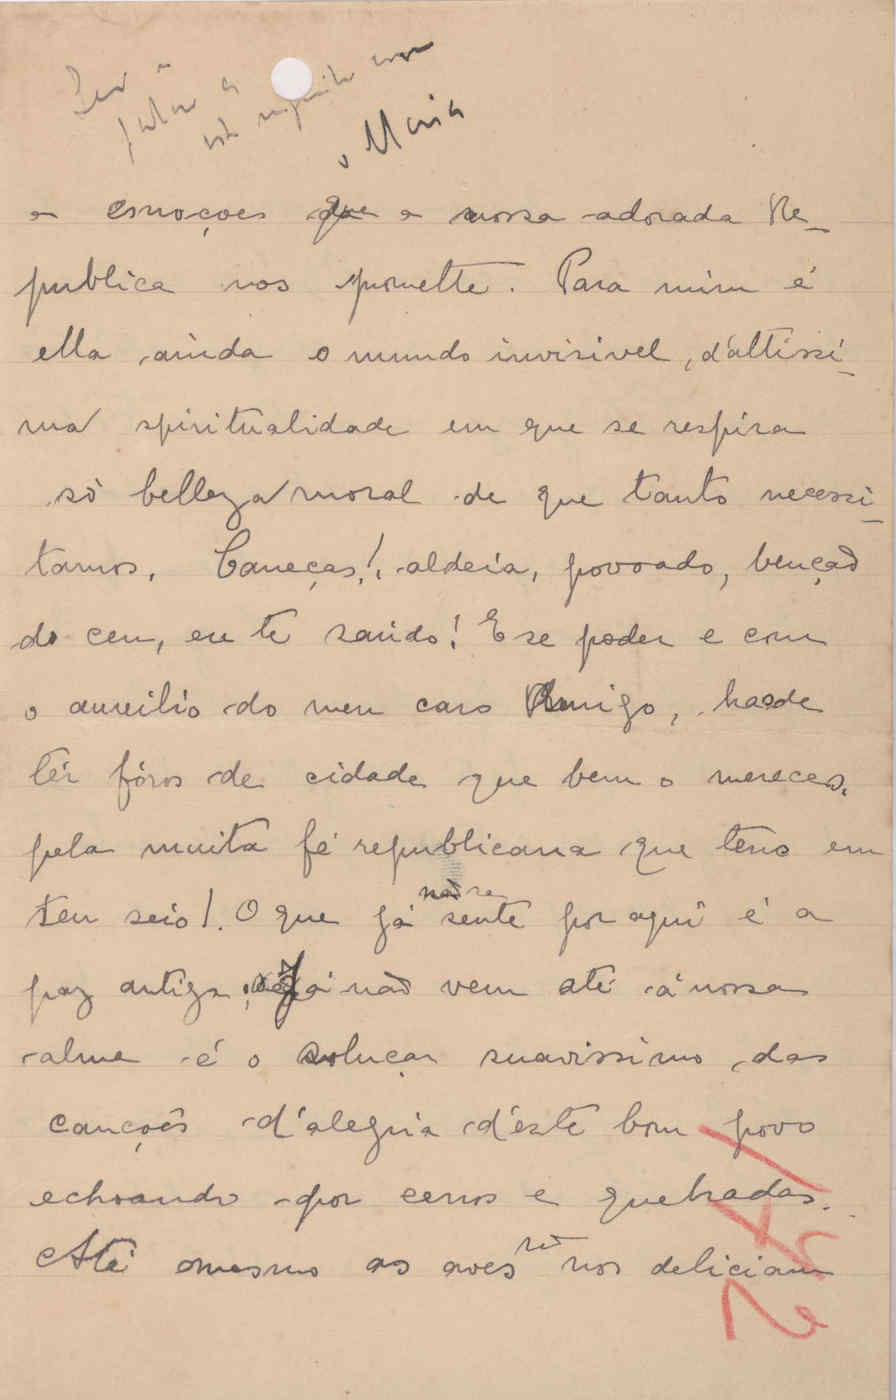 Maria
e emoções que a nossa adorada Re-
publica nos promette. Para mim é
ella ainda o mundo invisivel, d'altissi-
ma spiritualidade em que se respira
só belleza moral de que tanto necessi-
tamos. Caneças!, aldeia, povoado, bençaõ
do ceu, eu te saúdo! E se poder e com
o auxilio do meu caro Amigo, hasde
têr fóros de cidade que bem o mereces,
pela muita fé republicana que tens em
teu seio!. O que já naõ se sente por aqui é a
paz antiga; já naõ vem até á nossa
alma é o soluçar suavissimo das
canções d'alegria d'este bom povo
echoando por cerros e quebradas.
Até mesmo as aves naõ nos deliciam